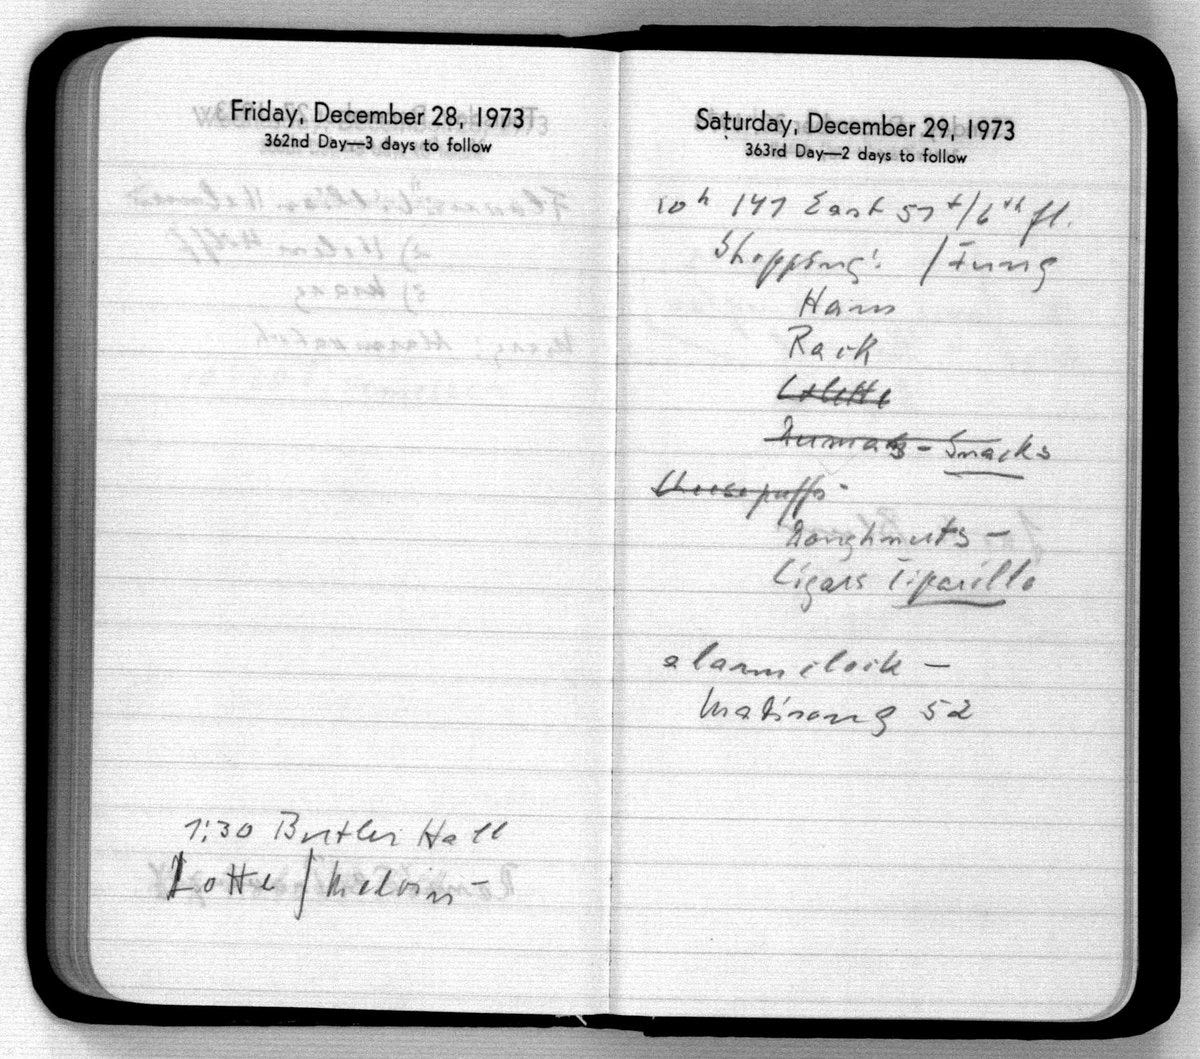 Friday, December 28, 1973
362nd Day—3 days to follow
7:30 Butler Hall
Lotte / Melvin –
Saturday, December 29, 1973
363rd Day—2 days to follow
10h 147 East 57t/6th fl.
Shopping: / Fung
Ham
Rack
Colette
– Snacks
Cheesepuffs –
Doughnuts –
Cigars Tiparillo
alarm clock –
52